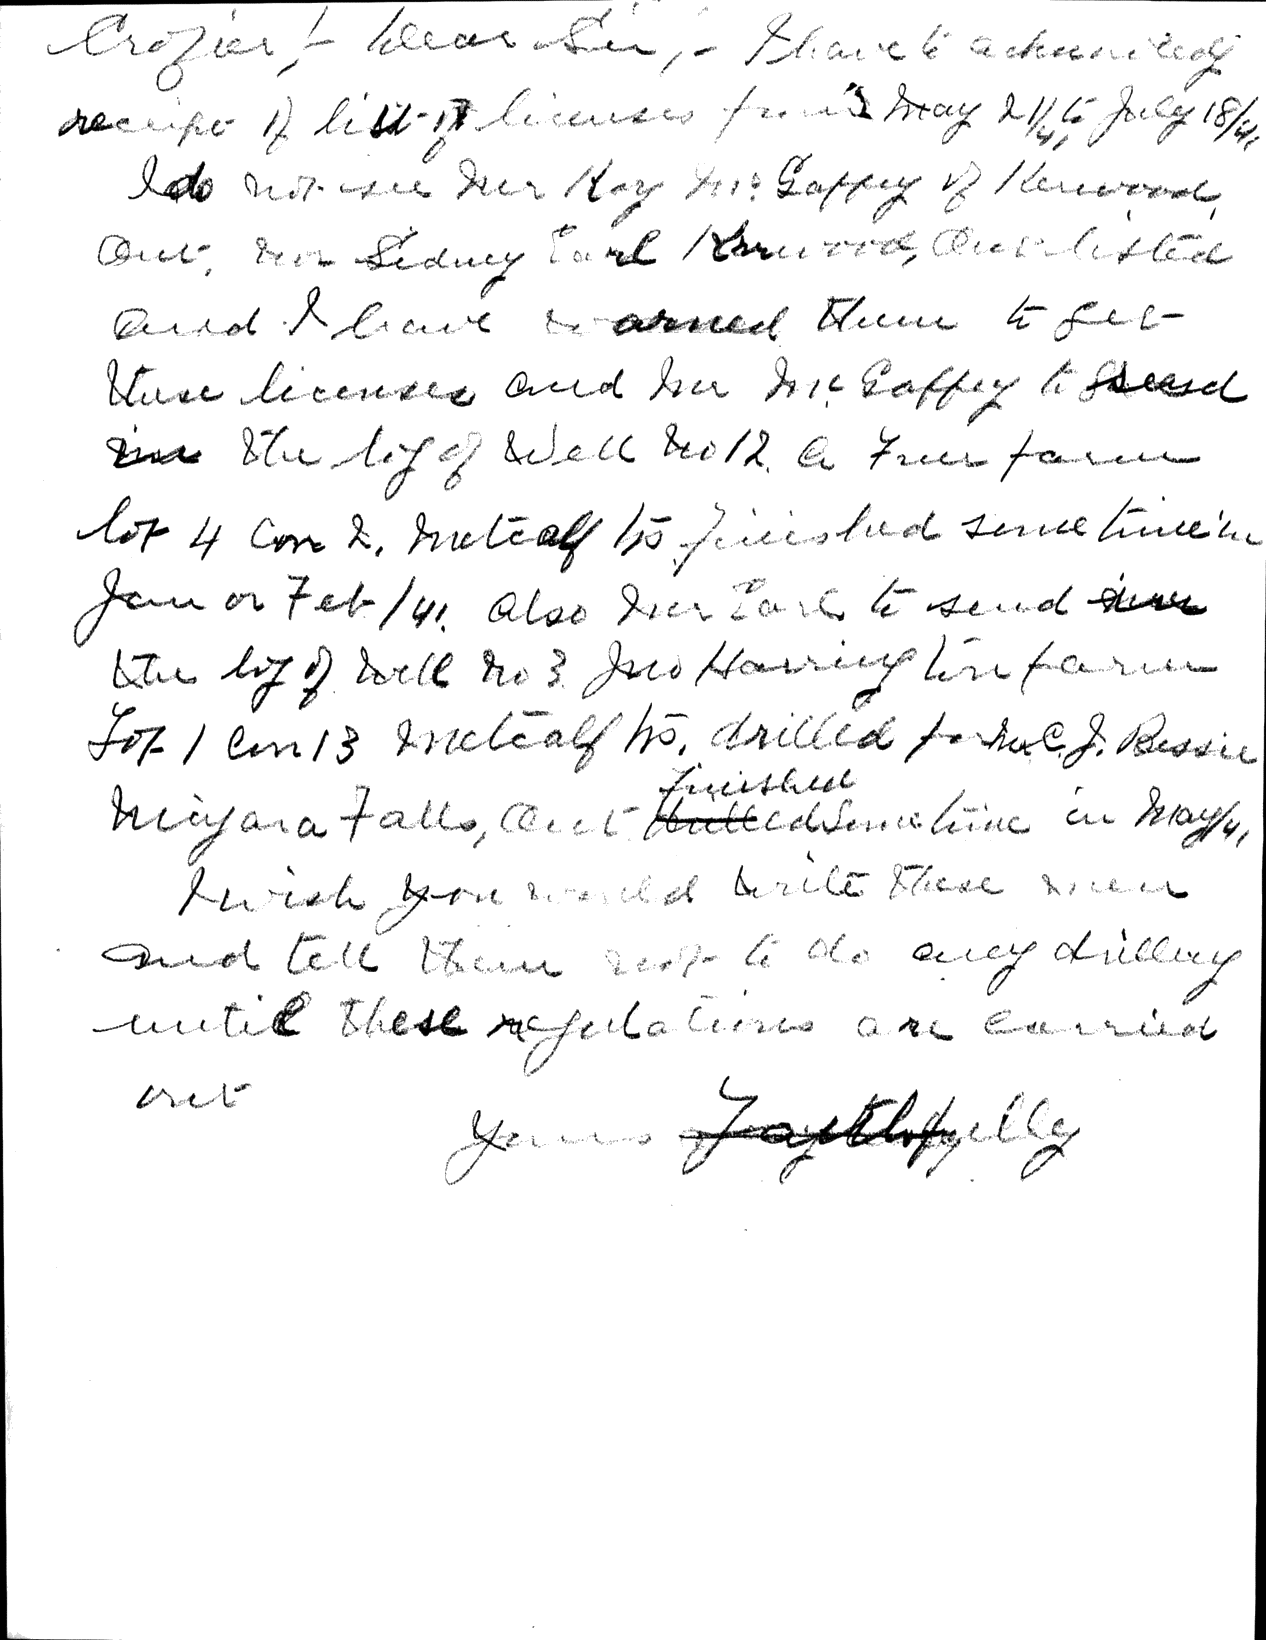 Crozier,- Dear Sir,- I have to acknowledg
receipt of list of licenses from May 21/41, to July 18/41,
I do not see Mr Roy Mc. Gaffey of Kerwood,
Ont, nor Sidney Earl Kerwood, Ont listed
and I have warned them to get
these licenses and Mr Mc. Gaffey to send
me the log of Well No 12. A Free farm
lot 4 Con 2. Metcalf tp finished sometime in
Jan or Feb/41. also Mr Earl to send
the log of Well No 3 Jno Harrington farm
Lot 1 Con 13 Metcalf tp, drilled for Mr. C. J. Bessie
Niagara Falls, Ont finished Sometime in May/41,
I wish you would write these men
and tell them not to do any drilling
until these regulations are carried
out
Yours Faythfully